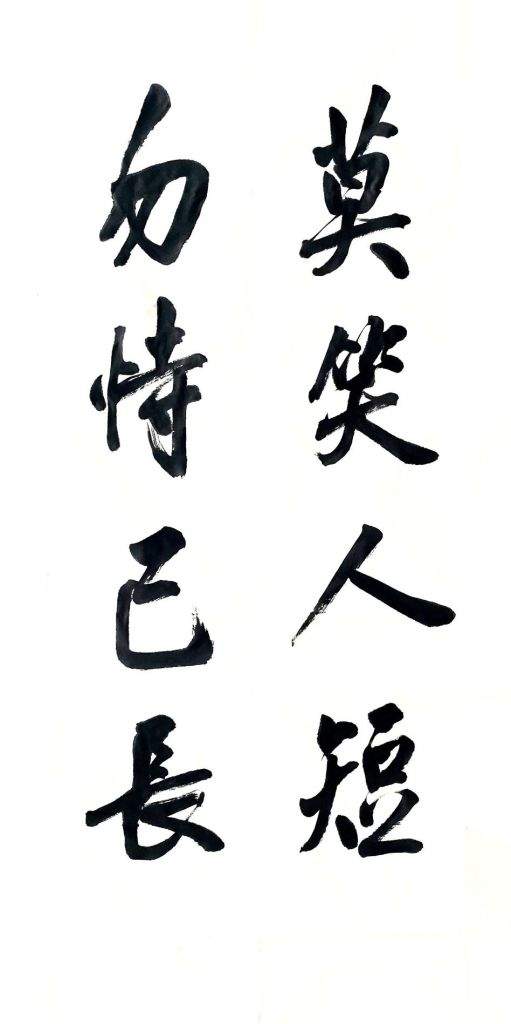 莫笑人短
勿恃己長